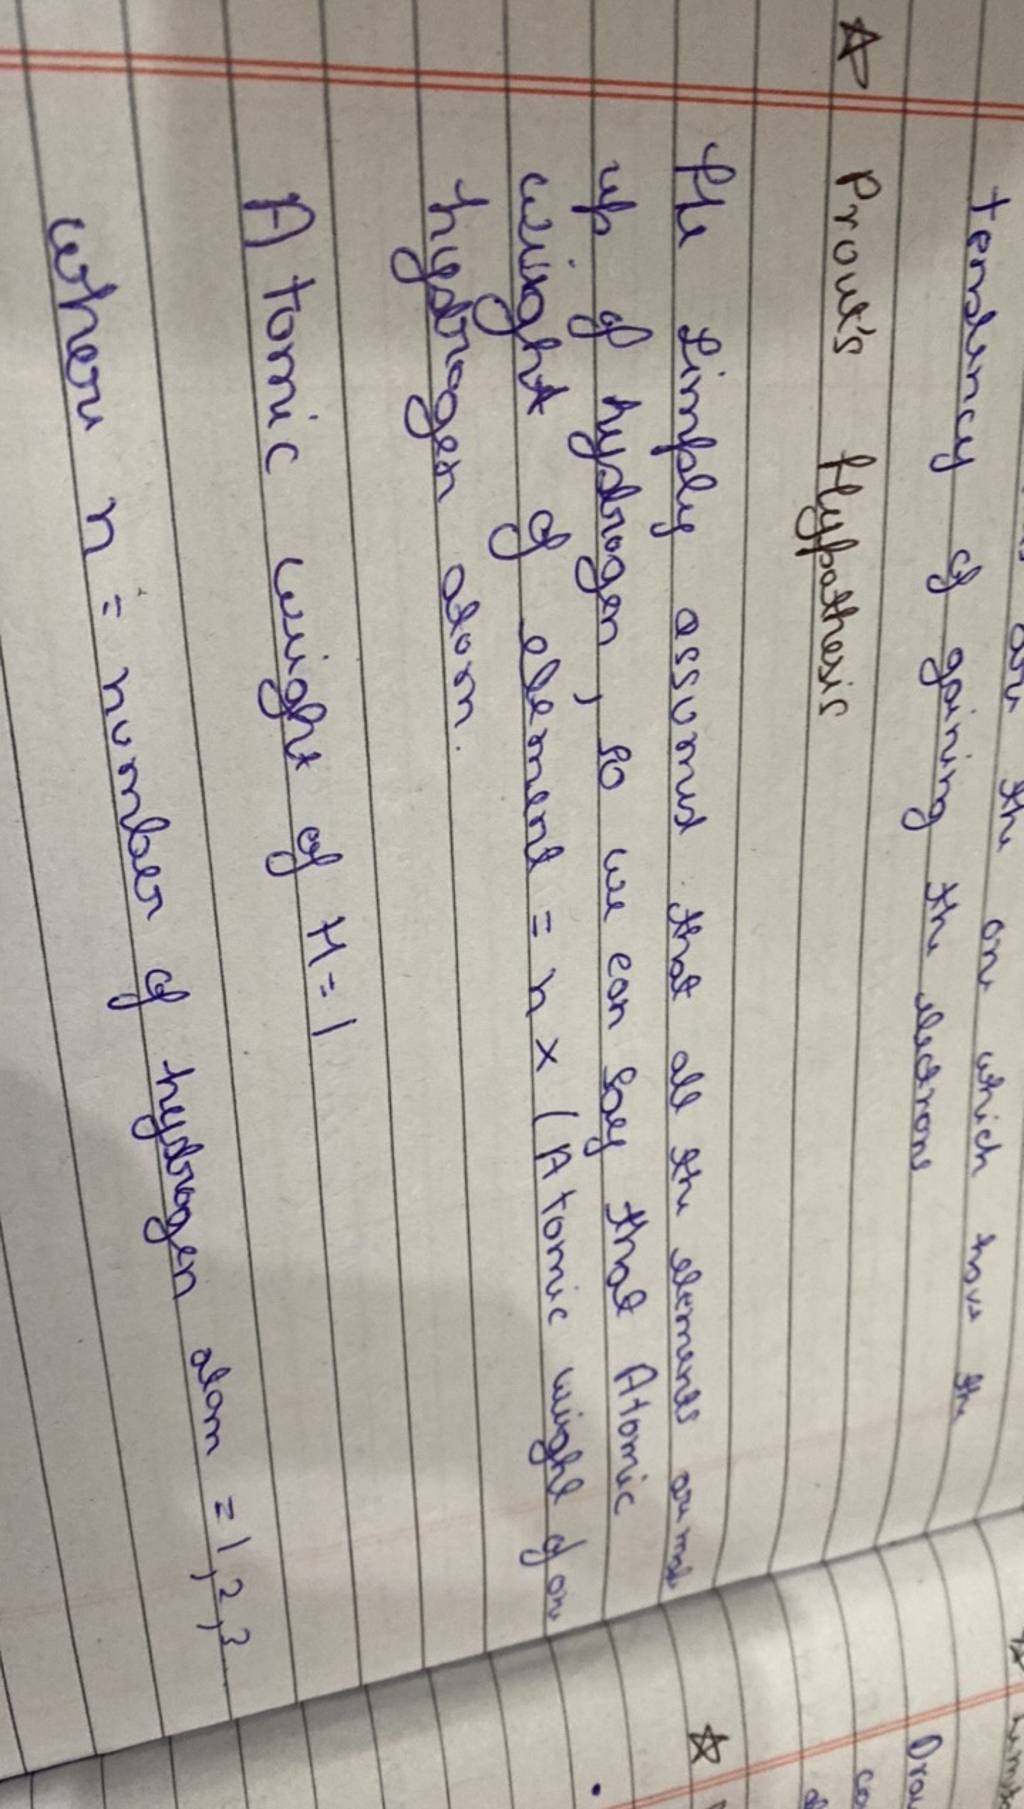 are the one which have the
tendency of gaining the electrons
☆ Prout's Hypothesis
He simply assumed that all the elements are made
up of hydrogen, so we can say that Atomic
weight of element = n × (Atomic weight of one
hydrogen atom.
Atomic weight of H = 1
where n = number of hydrogen atom = 1, 2, 3
☆